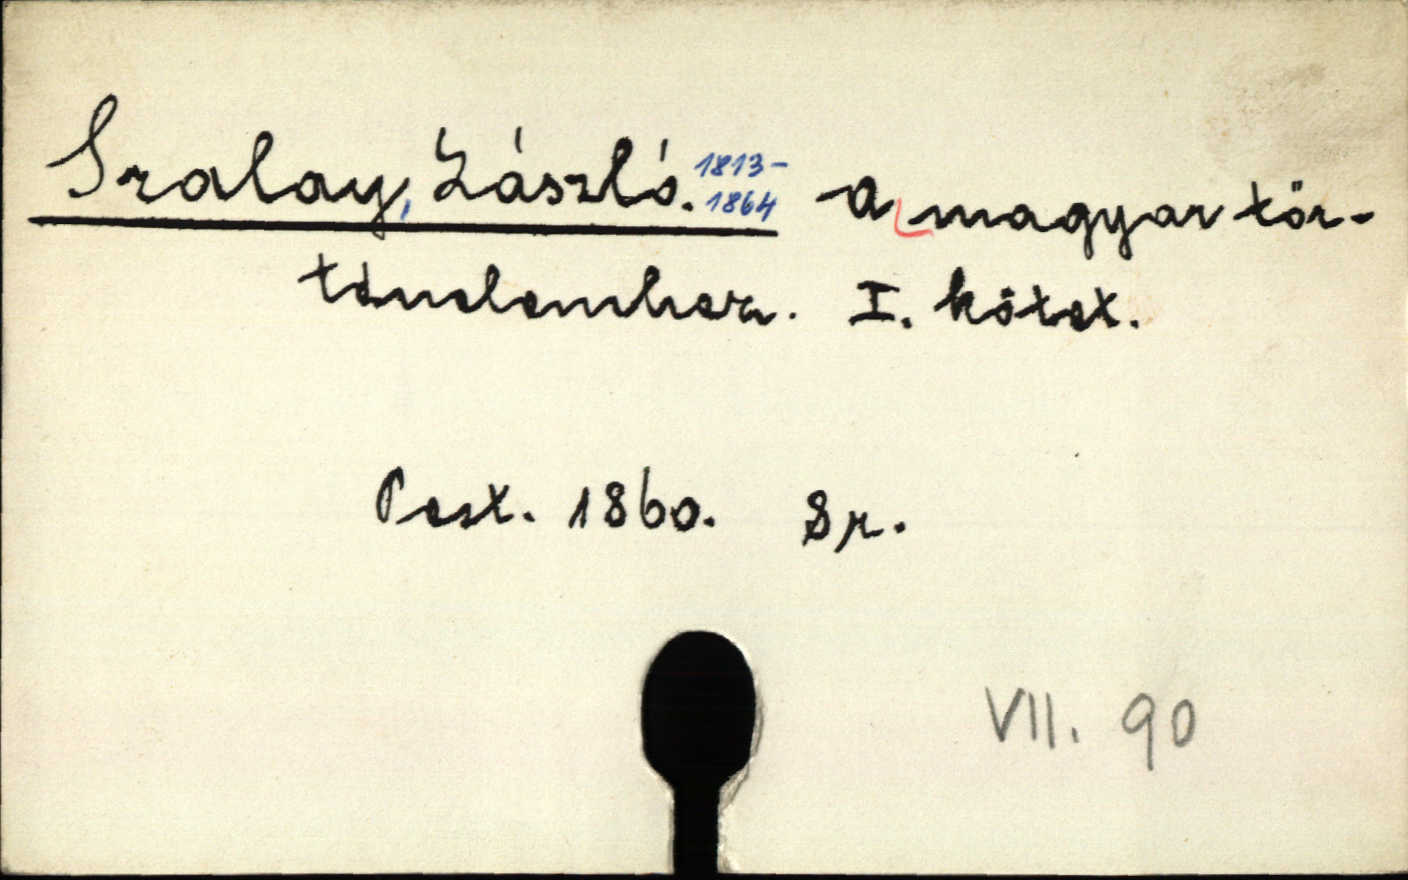 Szalay, László. 1813-1864 A magyar tör-
ténelemhez. I. kötet.
Pest. 1860. 8r.
VII. 90